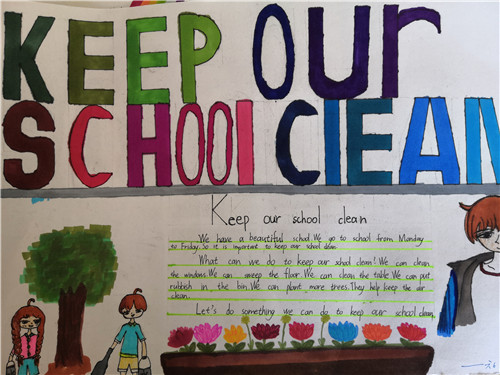 KEEP OUr
SCHOOl ClEAN
Keep our school clean
We have a beautiful school. We go to school from Monday
to Friday. So it is important to keep our school clean.
What can we do to keep our school clean? We can clean
the windows. We can sweep the floor. We can clean the table. We can put
rubbish in the bin. We can plant more trees. They help keep the air
clean.
Let's do something we can do to keep our school clean.